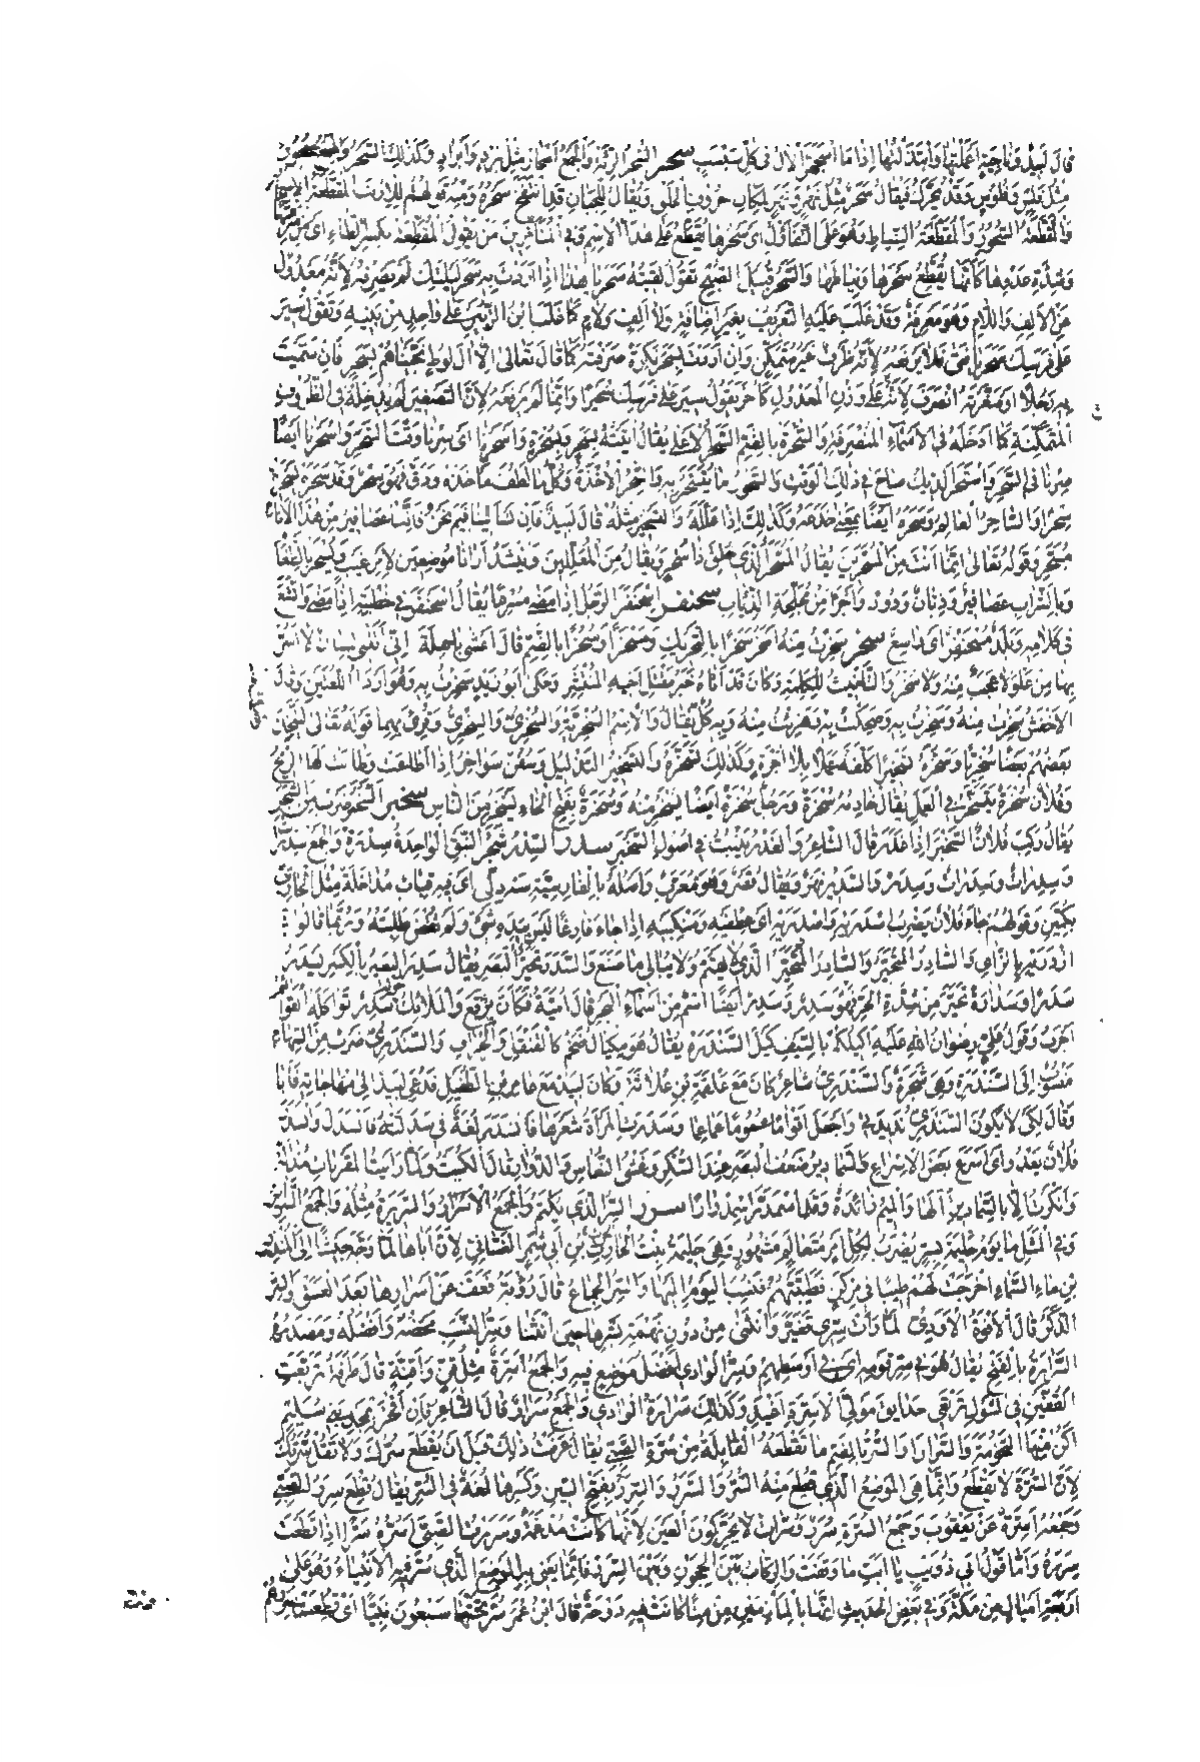 قال لبيد وناجية أعملتها وابتذلتها إذا ما اسجهر الآل في كل سبسب سحر السحر الرئة والجمع أسحار مثل برد وأبراد وكذلك السحر والجمع سحور
مثل فلس وفلوس وقد يحرك فيقال سحر مثل نهر ونهر لمكان حروف الحلق ويقال للجبان قد انتفخ سحره ومنه قولهم للأرنب المقطعة الأسحار
والمقطعة السحور والمقطعة النياط وهو على التفاؤل أي سحرها يقطع على هذا الاسم وفي المتأخرين من يقول المقطعة بكسر الطاء أي من سرعتها
وشدة عدوها كأنها تقطع سحرها ونياطها والسحر قبيل الصبح تقول لقيته سحريا هذا إذا أردت به سحر ليلتك لم تصرفه لأنه معدول
عن الألف واللام وهو معرفة وقد غلب عليه التعريف بغير إضافة ولا ألف ولام كما غلب ابن الزبير على واحد من بنيه وتقول سير
على فرسك سحر يا فتى فلا ترفعه لأنه ظرف غير متمكن وإن أردت بسحر نكرة صرفته كما قال تعالى إلا آل لوط نجيناهم بسحر فإن سميت
به رجلا أو صغرته انصرف لأنه على وزن المعدول كأخر تقول سير على فرسك سحيرا وإنما لم ترفعه لأن التصغير لم يدخله في الظروف
المتمكنة كما أدخله في الأسماء المنصرفة والسحرة بالضم السحر الأعلى يقال أتيته بسحر وبسحرة وأسحرنا أي سرنا وقت السحر وأسحرنا أيضا
صرنا في السحر واستحر الديك صاح في ذلك الوقت والسحور ما يتسحر به والسحر الأخذة وكل ما لطف مأخذه ودق فهو سحر وقد سحره يسحره
سحرا والساحر العالم وسحره أيضا بمعنى خدعه وكذلك إذا علله والتسحير مثله قال لبيد فإن تسألينا فيم نحن فإننا عصافير من هذا الأنام
المسحر وقوله تعالى إنما أنت من المسحرين يقال المسحر الذي خلق ذا سحر ويقال من المعللين وينشد أرانا موضعين لأمر غيب ونسحر بالطعام
وبالشراب عصافير وذبان ودود وأجرأ من مجلحة الذئاب سحفر اسحنفر الرجل إذا مضى مسرعا يقال اسحنفر في خطبته إذا مضى واتسع
في كلامه وبلد مسحنفر أي واسع سخر سخرت منه أسخر سخرا بالتحريك ومسخرا وسخرا بالضم قال أعشى باهلة إني أتتني لسان لا أسر
بها من علو لا عجب منه ولا سخر والتأنيث للكلمة وكان قد أتاه خبر مقتل أخيه المنتشر وحكى أبو زيد سخرت به وهو أردأ اللغتين وقال
الأخفش سخرت منه وسخرت به وضحكت به وهزئت منه وبه كل يقال والاسم السخرية والسخري والسخري وقرئ بهما قوله تعالى ليتخذ
بعضهم بعضا سخريا وسخره تسخيرا كلفه عملا بلا أجرة وكذلك تسخره والتسخير التذليل وسفن سواخر إذا أطاعت وطابت لها الريح
وفلان سخرة يتسخر في العمل يقال خادمه سخرة ورجل سخرة أيضا يسخر منه وسخرة بفتح الخاء يسخر من الناس سخبر السخبر ضرب من الشجر
يقال ركب فلان السخبر إذا غدر قال الشاعر والغدر ينبت في أصول السخبر سدر السدر شجر النبق الواحدة سدرة والجمع سدرات
وسدرات وسدرات وسدر والسدير نهر ويقال قصر وهو معرب وأصله بالفارسية سه دلي أي فيه قباب مداخلة مثل الحاري
بكمين وقولهم جاء فلان يضرب أسدريه وأصدريه أي عطفيه ومنكبيه إذا جاء فارغا ليس بيده شيء ولم يقض طلبته وربما قالوا
أزدريه بالزاي والسادر المتحير والسادر المتحير الذي لا يهتم ولا يبالي ما صنع والسدر تحير البصر يقال سدر البصير بالكسر يسدر
سدرا وسدارة تحير من شدة الحر فهو سدر وسدر أيضا اسم من أسماء البحر قال أمية فكأن برقع والملائك سدر تواكله القوائم
أجرب وقول علي رضوان الله عليه أكيلكم بالسيف كيل السندره يقال هو مكيال ضخم كالقنقل والجراف والسندري ضرب من السهام
منسوب إلى السندرة وهي شجرة والسندري شاعر كان مع علقمة بن علاثة وكان لبيد مع عامر بن الطفيل فدعي لبيد إلى مهاجاته فأبى
وقال لكي لا يكون السندري نديدتي وأجعل أقواما عموما عماعما وسدرت المرأة شعرها فانسدر لغة في سدلته فانسدل وانسدر
فلان يعدو أي أسرع بعض الإسراع والسمادير ضعف البصر عند السكر وغشي النعاس والدوار قال الكميت ولما رأيت المقربات مذالة
وأنكرت إلا بالسمادير آلها والميم زائدة وقد اسمدر اسمدرارا سرر السر الذي يكتم والجمع الأسرار والسريرة مثله والجمع السرائر
وفي المثل ما يوم حليمة بسر يضرب لكل أمر متعالم مشهور وهي حليمة بنت الحارث بن أبي شمر الغساني لأن أباها لما وجه جيشا إلى المنذر
بن ماء السماء أخرجت لهم طيبا في مركن فطيبتهم فنسب اليوم إليها والسر الجماع قال رؤبة فعف عن أسرارها بعد العسق والسر
الذكر قال الأفوه الأودي لما رأت سري تغير وانثنى من دون نهمة شبرها حين انثنى وسر النسب محضه وأفضله ومصدره
السرارة بالفتح يقال هو في سر قومه أي في أوسطهم وسر الوادي أفضل موضع فيه والجمع أسرة مثل قن وأقنة قال طرفة تربعت
القفين في الشول ترتعي حدائق مولي الأسرة أغيد وكذلك سرارة الوادي والجمع سرار قال الشاعر فإن أفخر بمجد بني سليم
أكن منها التخومة والسرارا والسر بالضم ما تقطعه القابلة من سرة الصبي يقال عرفت ذلك قبل أن يقطع سرك ولا تقل سرتك
لأن السرة لا تقطع وإنما هي الموضع الذي قطع منه السر والسرر والسرر بفتح السين وكسرها لغة في السر يقال قطع سرر الصبي
وجمعه أسرة عن يعقوب وجمع السرة سرر وسرات لا يحركون العين لأنها كانت مدغمة وسررت الصبي أسره سرا إذا قطعت
سرره وأما قول أبي ذؤيب بآية ما وقفت والركاب بين الحجون وبين السرر فإنما يعني به الموضع الذي سر فيه الأنبياء وهو على
أربعة أميال من مكة وفي بعض الحديث إنها بالمأزمين من منى كانت فيه دوحة قال ابن عمر سر تحتها سبعون نبيا أي قطعت سررهم